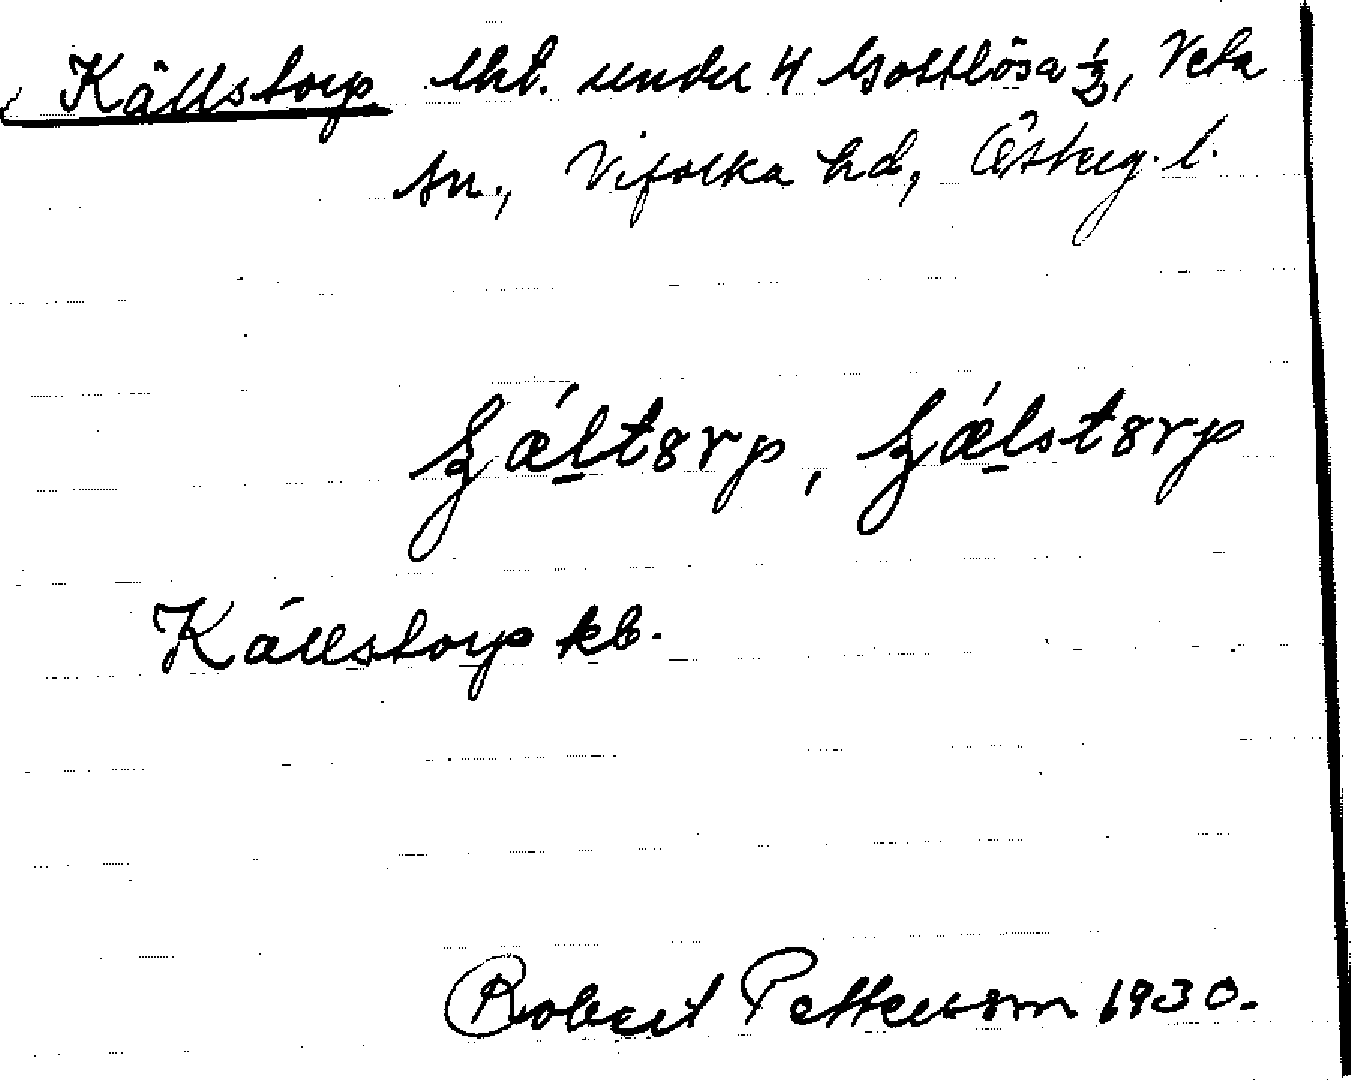 Källstorp lht. under 4 Gottlösa ½, Veta
sn., Vifolka hd, Österg. l.
ʂǽltorp, ʂǽlstorp
Källstorp kb.
Robert Petterson 1930.